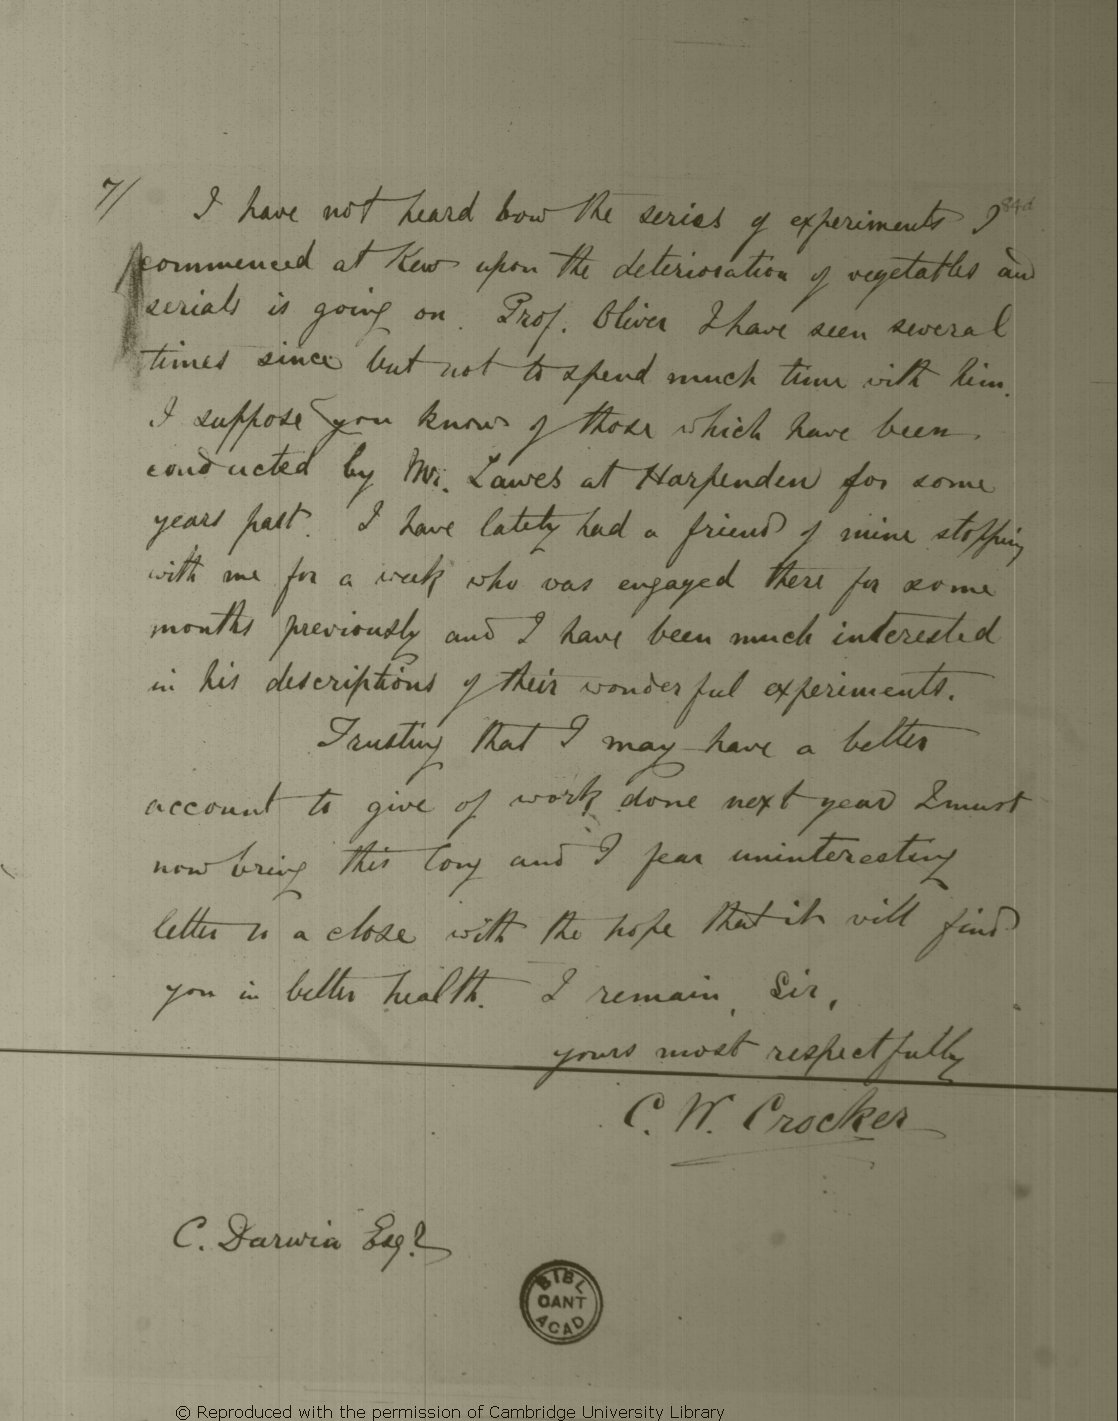 7/ I have not heard how the series of experiments I 84d
commenced at Kew upon the deterioration of vegetables and
serials is going on. Prof. Oliver I have seen several
times since but not to spend much time with him.
I suppose you know of those which have been
conducted by Mr. Lawes at Harpenden for some
years past. I have lately had a friend of mine stopping
with me for a week who was engaged there for some
months previously and I have been much interested
in his descriptions of their wonderful experiments.
Trusting that I may have a better
account to give of work done next year I must
now bring this long and I fear uninteresting
letter to a close with the hope that it will find
you in better health. I remain, Sir,
yours most respectfully
C. W. Crocker
C. Darwin Esq.r
BIBL
CANT
ACAD
© Reproduced with the permission of Cambridge University Library